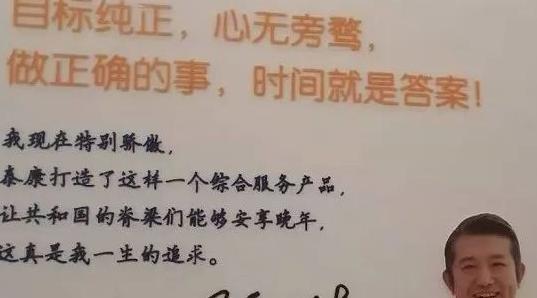 目标纯正，心无旁骛，
做正确的事，时间就是答案！
我现在特别骄傲，
泰康打造了这样一个综合服务产品，
让共和国的脊梁们能够安享晚年，
这真是我一生的追求。